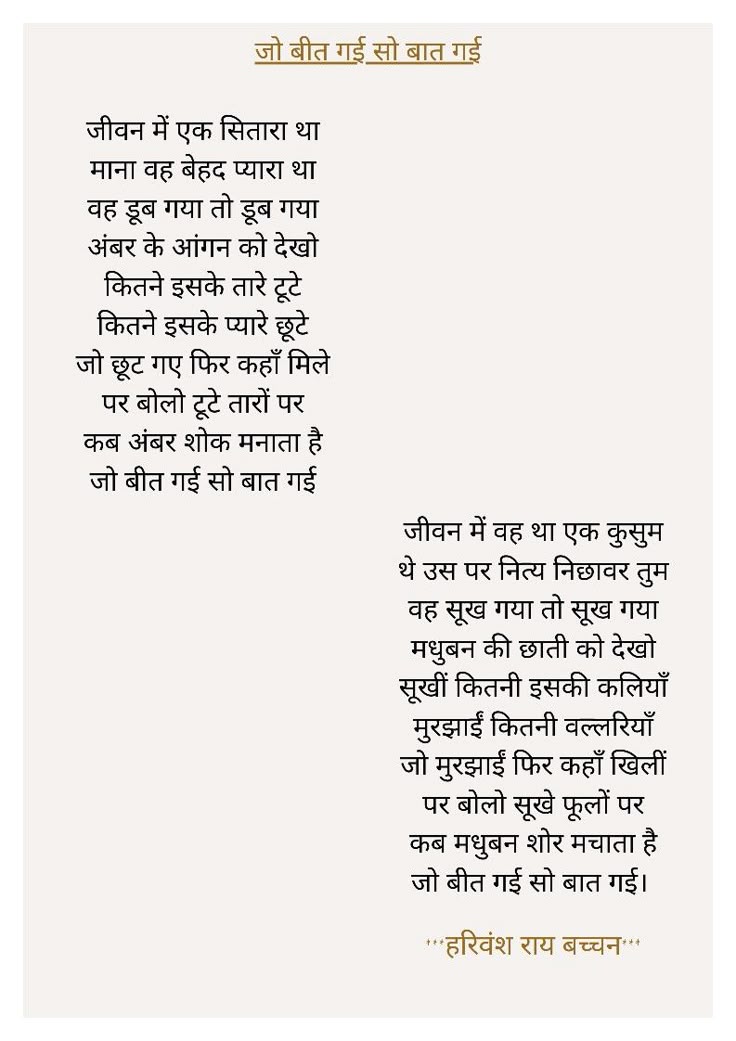 जो बीत गई सो बात गई
जीवन में एक सितारा था
माना वह बेहद प्यारा था
वह डूब गया तो डूब गया
अंबर के आंगन को देखो
कितने इसके तारे टूटे
कितने इसके प्यारे छूटे
जो छूट गए फिर कहाँ मिले
पर बोलो टूटे तारों पर
कब अंबर शोक मनाता है
जो बीत गई सो बात गई
जीवन में वह था एक कुसुम
थे उस पर नित्य निछावर तुम
वह सूख गया तो सूख गया
मधुबन की छाती को देखो
सूखीं कितनी इसकी कलियाँ
मुरझाईं कितनी वल्लरियाँ
जो मुरझाईं फिर कहाँ खिलीं
पर बोलो सूखे फूलों पर
कब मधुबन शोर मचाता है
जो बीत गई सो बात गई।
***हरिवंश राय बच्चन***